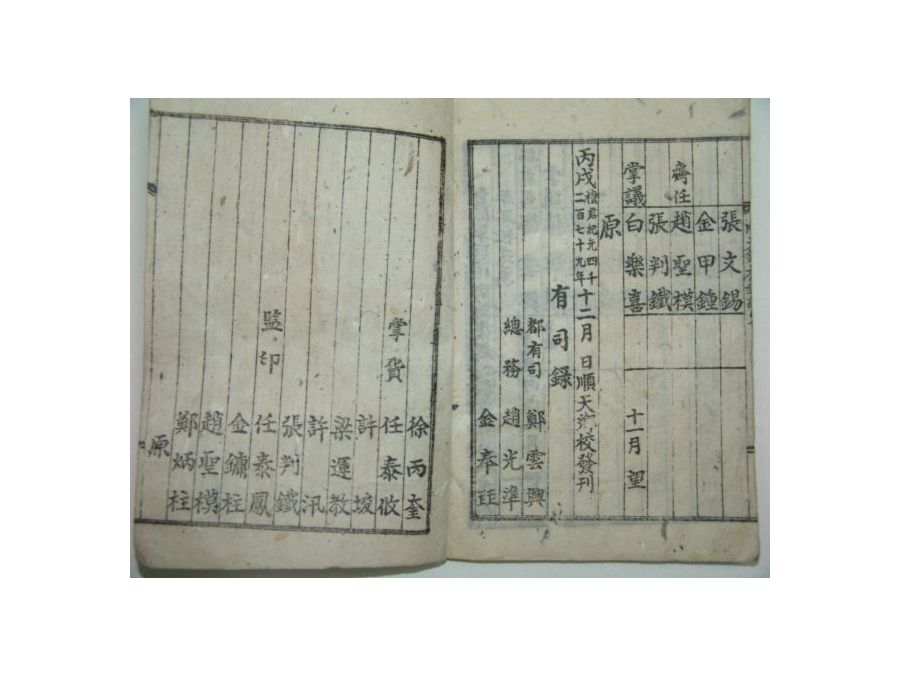 張文錫
金甲鍾
齋任 趙聖模
張判鐵
掌議 白樂喜 十一月望
原
丙戌檀君紀元四千二百七十九年十二月 日順天鄕校發刊
有司錄
都有司 鄭雲興
總務 趙光準
金奉
徐丙奎
掌貨 任泰
許埈
梁運敎
許汛
張判鐵
監印 任泰鳳
金鏞柱
趙聖模
鄭炳柱
原